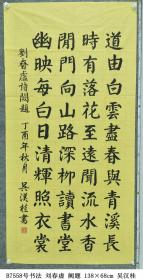 道由白雲盡春與青溪長
時有落花至遠聞流水香
閒門向山路深柳讀書堂
幽映每白日清輝照衣裳
劉眘虛詩闕題 丁酉年秋月 吳漢桂
B7558号书法 刘春虚 阙题 138×68cm 吴汉桂